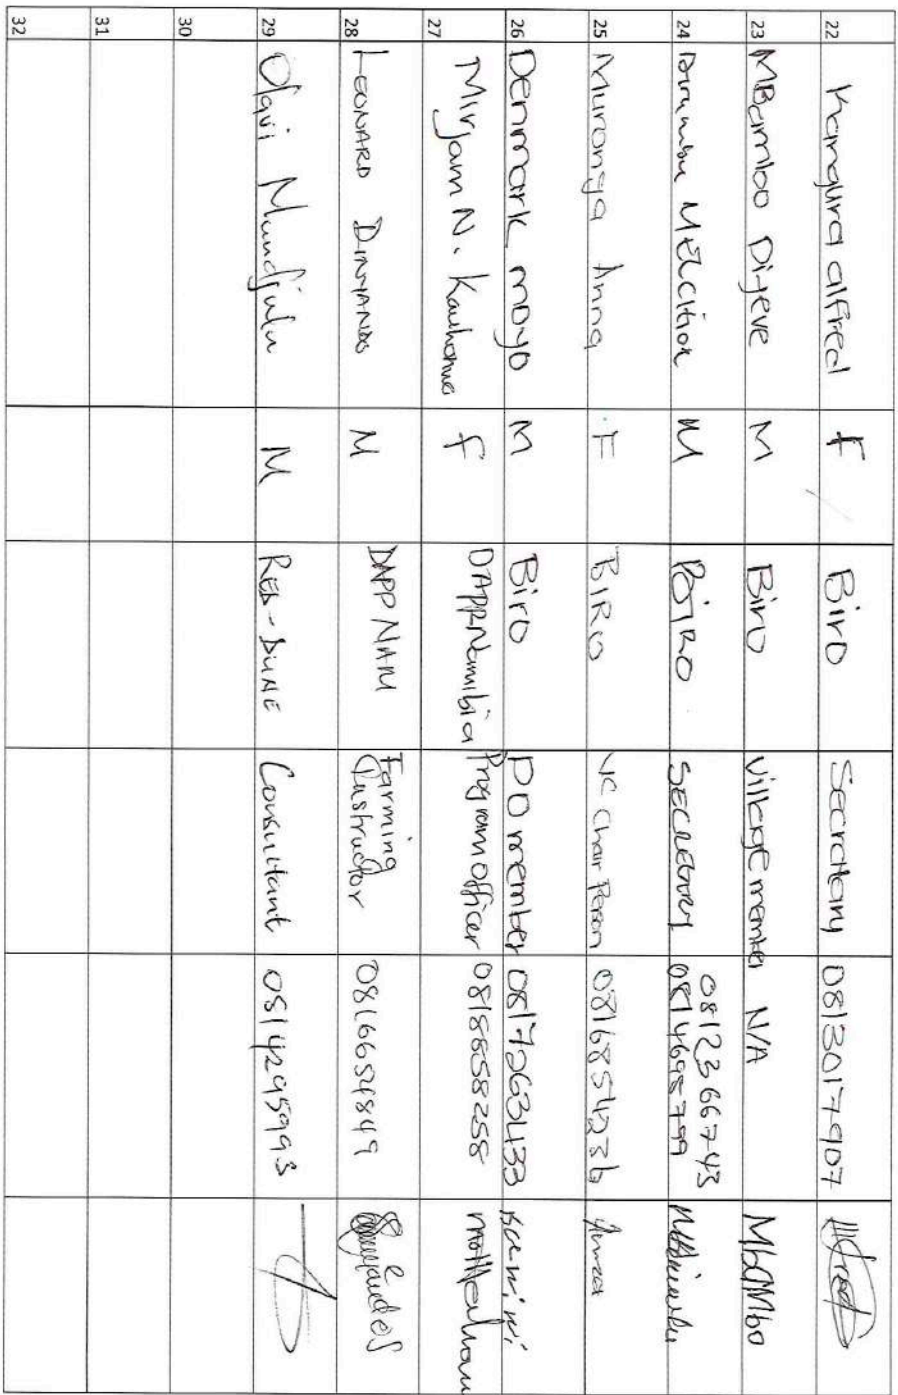 22 Kangura alfred F Biro Secretary 0813017907
23 MBambo Diyeve M Biro Village member N/A MbAMbo
24 M SECRETARY 0812366743 0814698799
25 Muronga Anna F BIRO VC Chair Person 0816854236 Anna
26 Denmark moyo M Biro DO member 0817263433
27 Mirjam N. F DAPP Namibia Program officer 0818858258
28 LEONARD M DAPP NAM Farming Instructor 0816654849
29 Olavi Mundjulu M RED-DUNE Consultant 0814295993
30
31
32